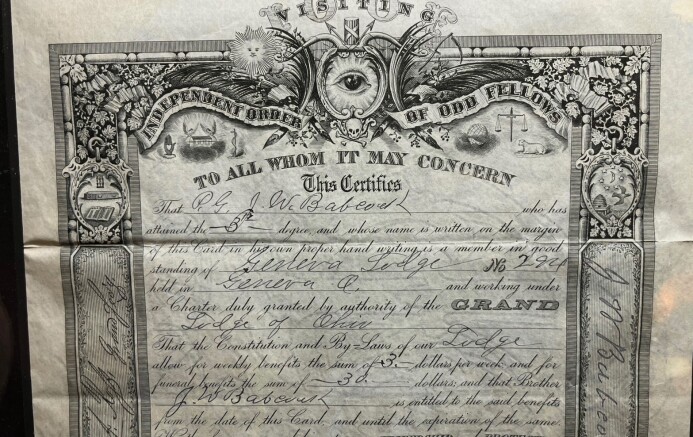 VISITING
INDEPENDENT ORDER OF ODD FELLOWS
TO ALL WHOM IT MAY CONCERN
This Certifies
That P. G. J. W. Babcock who has
attained the 5th degree, and whose name is written on the margin
of this Card in his own proper hand writing is a member in good
standing of Geneva Lodge No 294
held in Geneva O. and working under
a Charter duly granted by authority of the GRAND
Lodge of Ohio
That the Constitution and By-Laws of our Lodge
allow for weekly benefits the sum of 3. dollars per week and for
funeral benefits the sum of 30. dollars; and that Brother
J. W. Babcock is entitled to the said benefits
from the date of this Card, and until the expiration of the same.